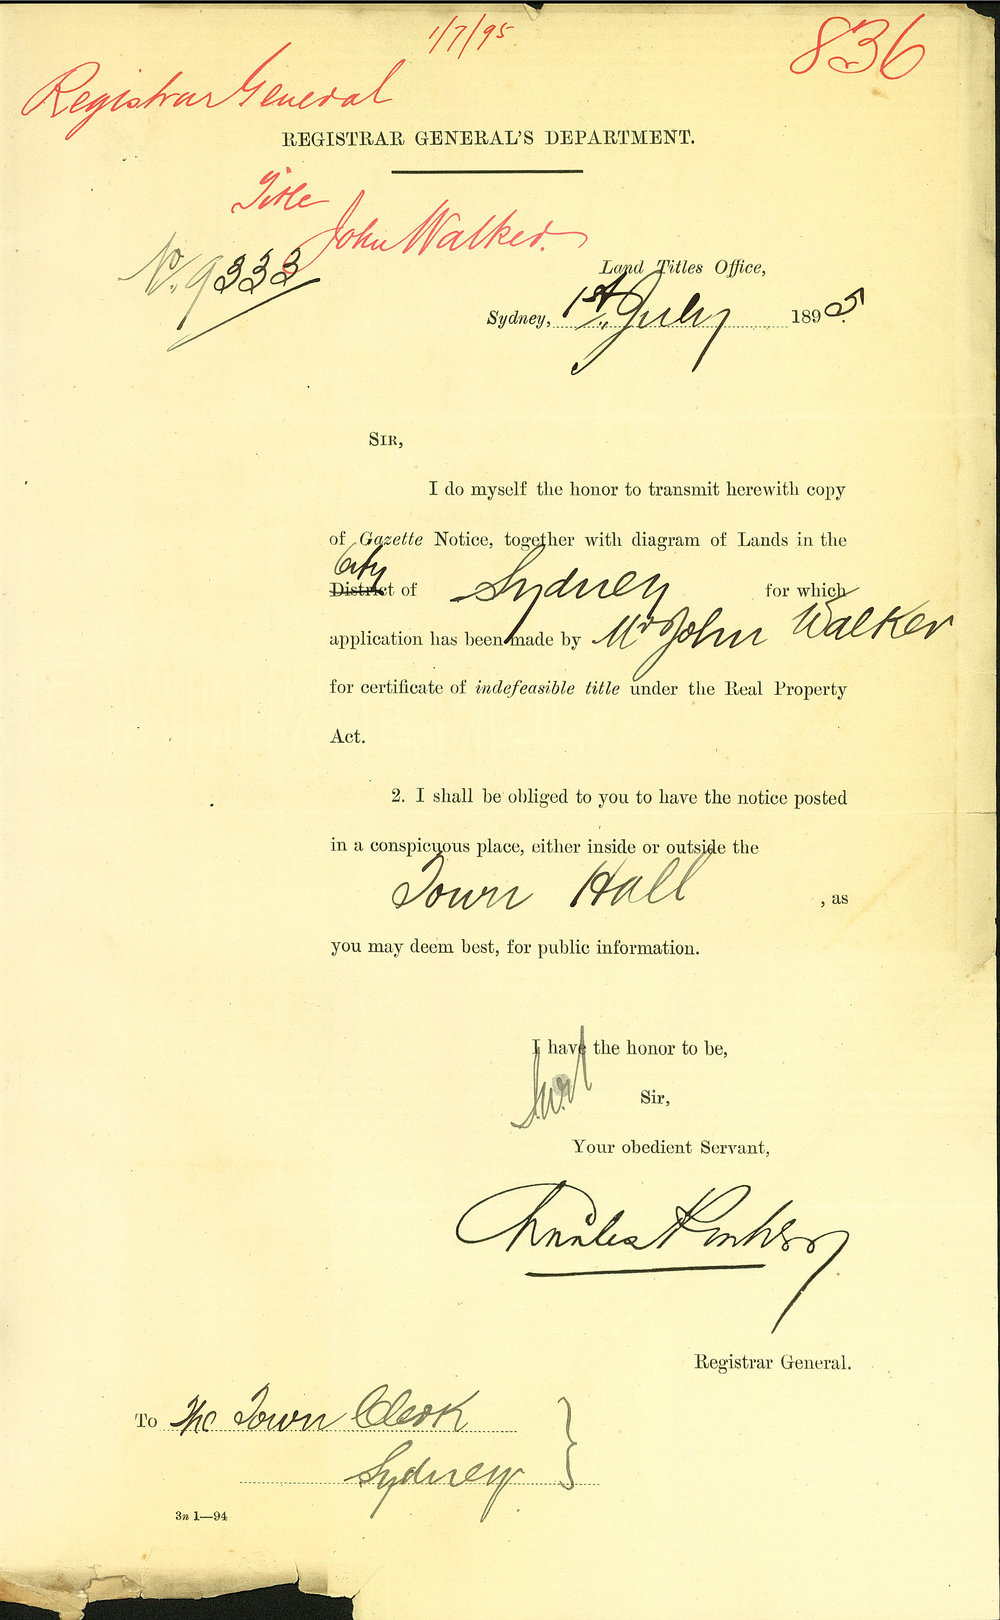 1/7/95
836
Registrar General
REGISTRAR GENERAL'S DEPARTMENT.
Title
John Walker.
No. 9333
Land Titles Office,
Sydney, 1st July 1895.
SIR,
I do myself the honor to transmit herewith copy
of Gazette Notice, together with diagram of Lands in the
City
District of Sydney for which
application has been made by Mr John Walker
for certificate of indefeasible title under the Real Property
Act.
2. I shall be obliged to you to have the notice posted
in a conspicuous place, either inside or outside the
Town Hall , as
you may deem best, for public information.
I have the honor to be,
Sir,
Your obedient Servant,
Charles
Registrar General.
To The Town Clerk
Sydney
3n 1—94